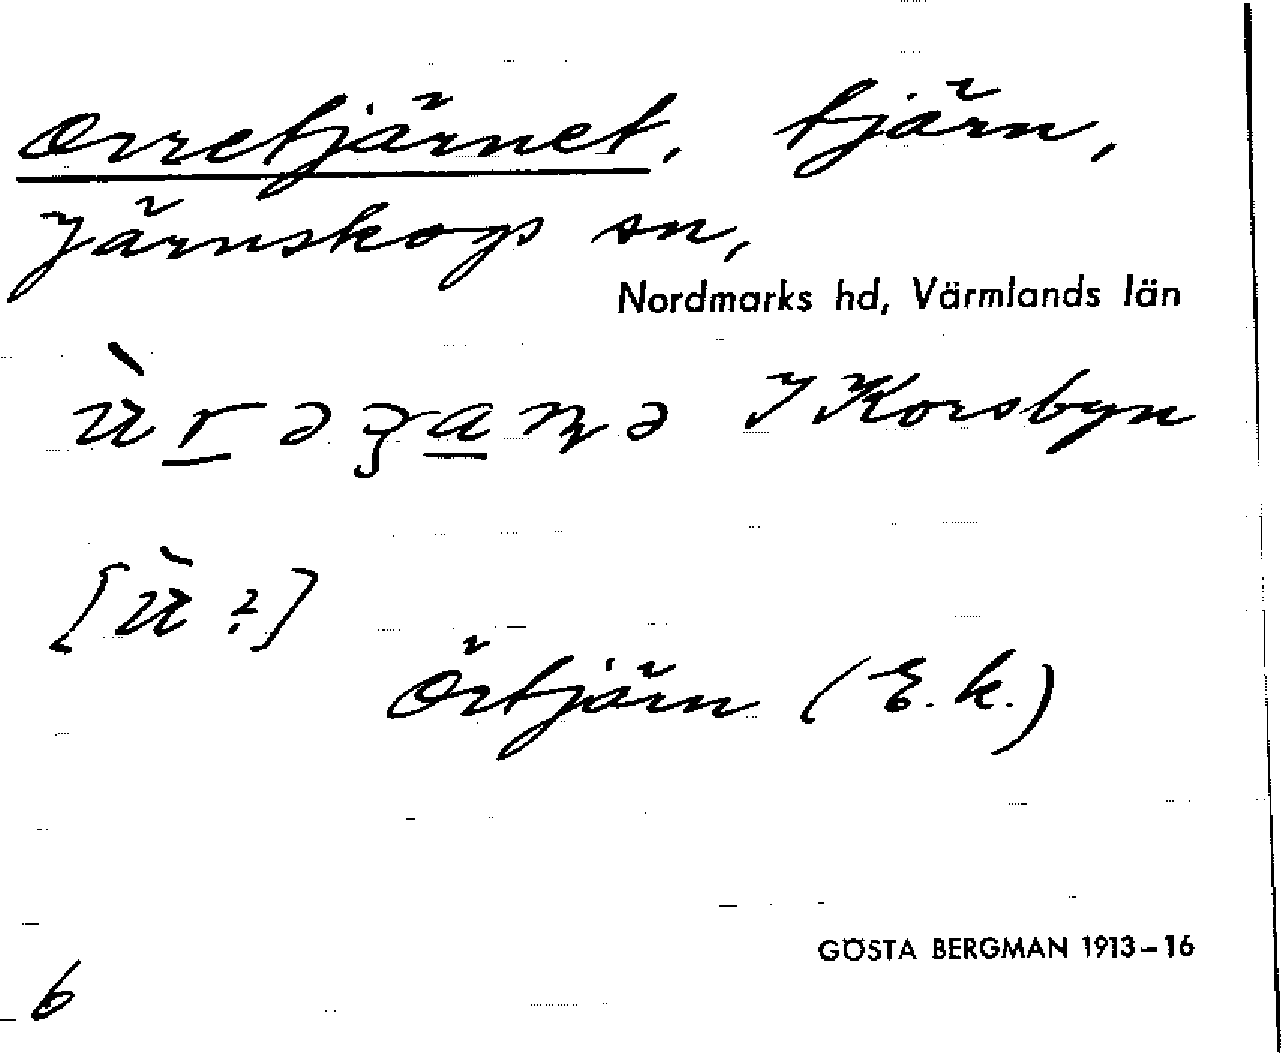 Orretjärnet, tjärn,
Järnskogs sn,
Nordmarks hd, Värmlands län
J Korsbyn
[ù ?]
Örtjärn (E.k.)
GÖSTA BERGMAN 1913–16
6